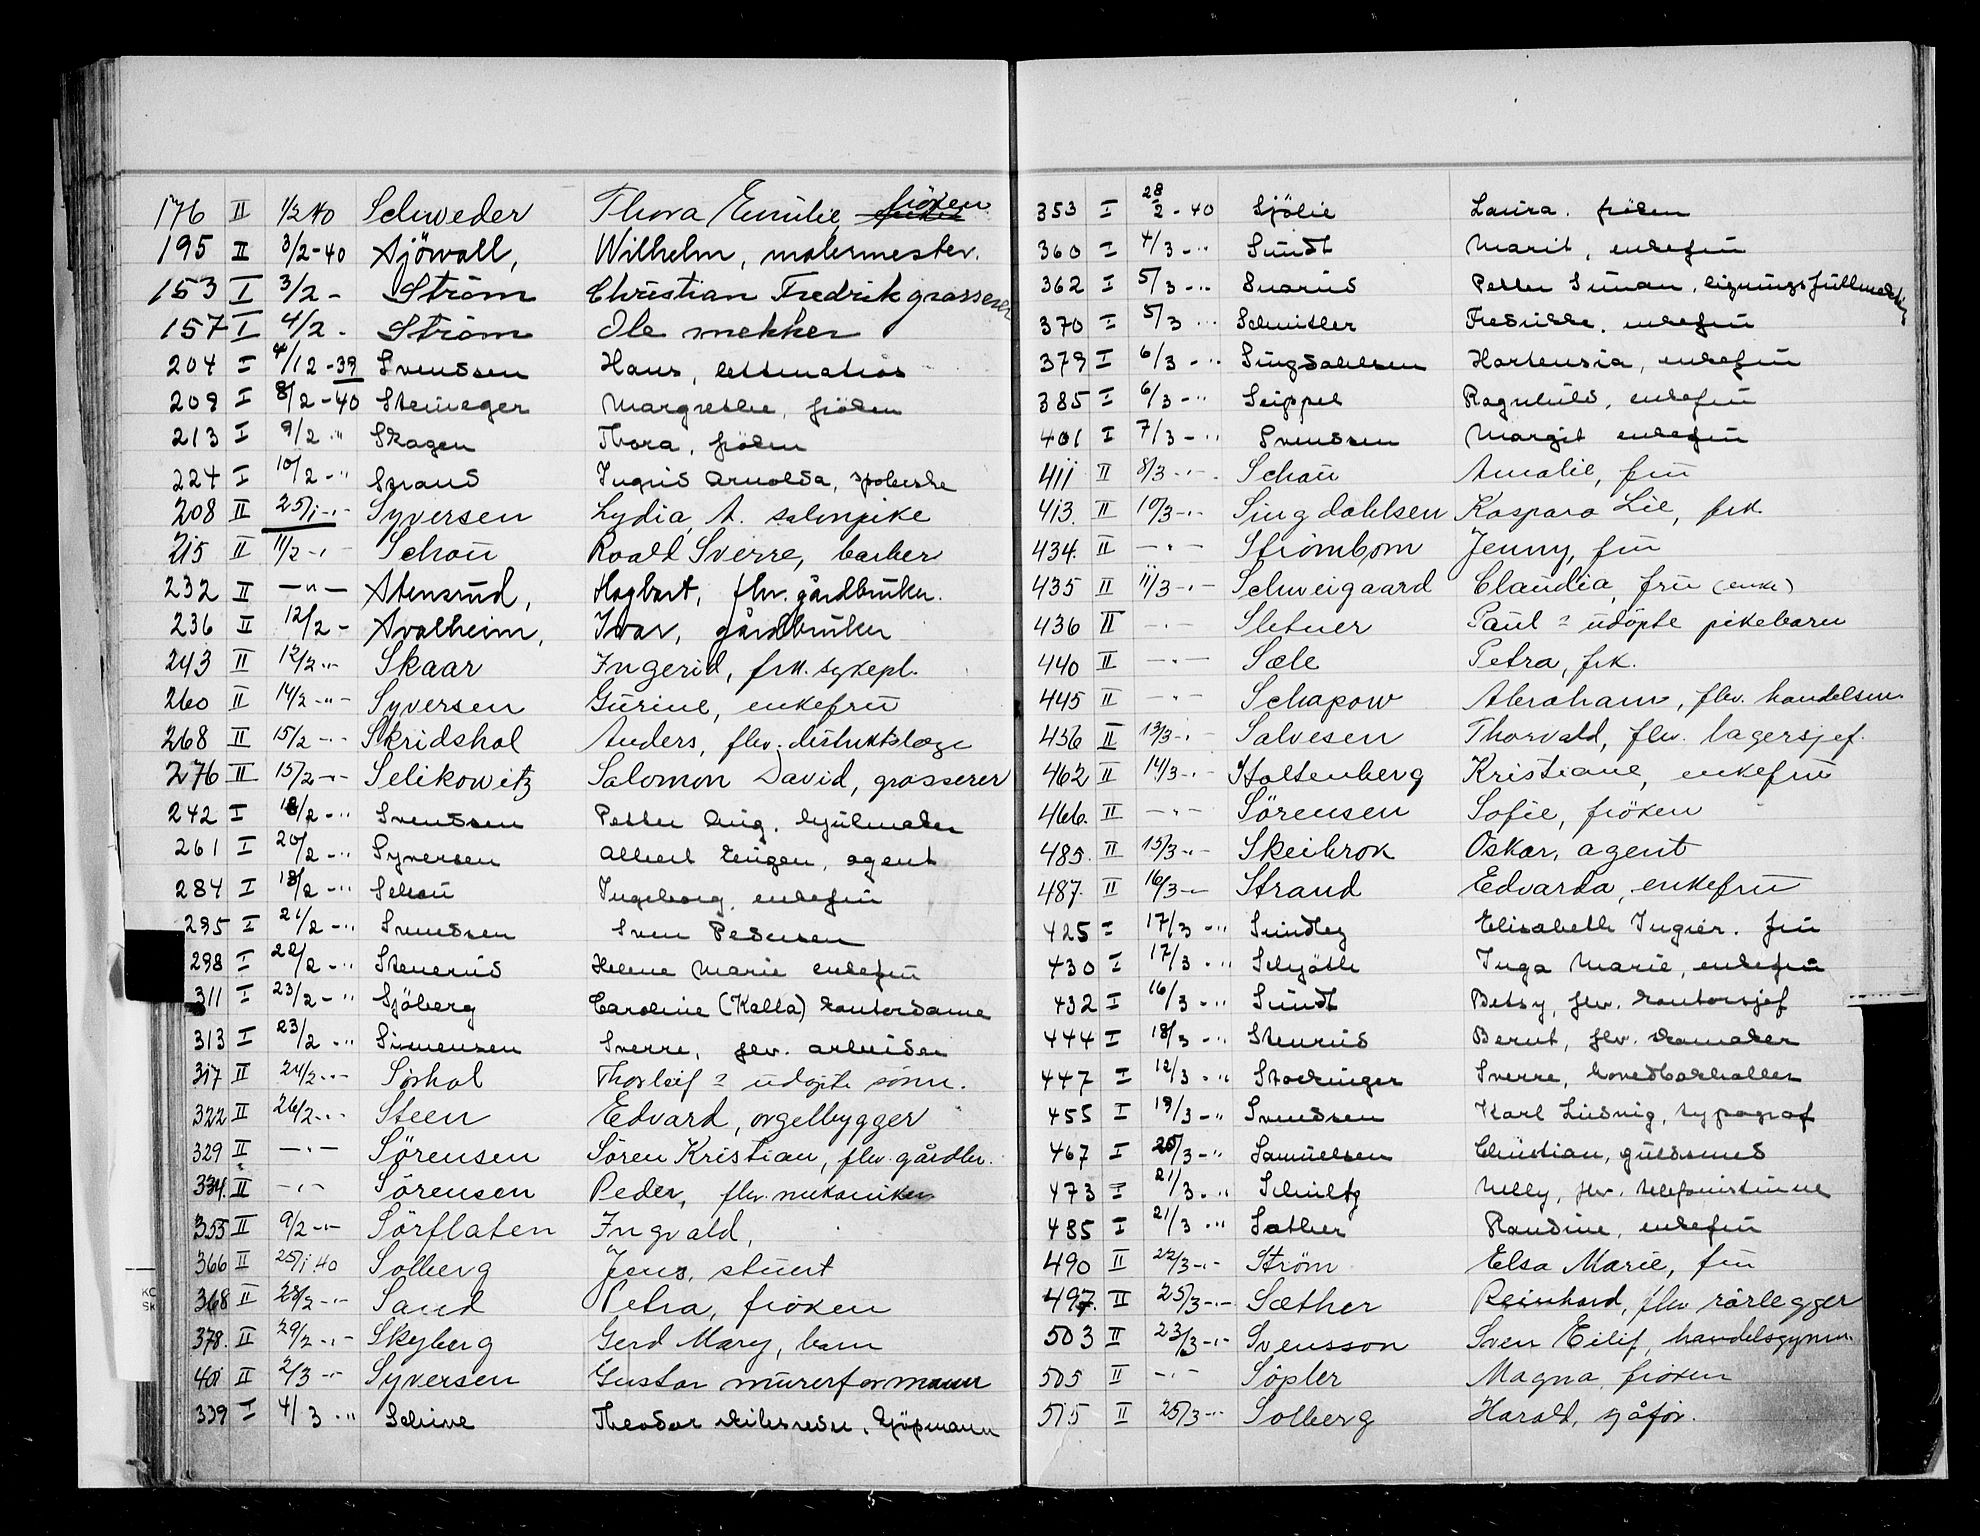 176 II 1/2 40 Schweder Thora Emilie, fröken
195 II 3/2-40 Sjövall, Wilhelm, malermester.
153 I 3/2 - Ström Christian Fredrik grosserer
157 I 4/2 - Ström Ole mekker
204 I 4/12-39 Svendsen Hans,
209 I 8/2-40 Steineger Margrethe, fröken
213 I 9/2 -" Skagen Thora, fröken
224 I 10/2 -" Strand Ingrid Arnolda, spolerske
208 II 25/1 -"- Syversen Lydia A. salonpike
215 II 11/2 -"- Schou Roald Sverre, barber
232 II -"- Stensrud, Hagbart, fhv. gårdbruker.
236 II 12/2 - Svalheim, Ivar, gårdbruker
243 II 12/2 -"- Skaar Ingerid, frk. sykepl.
260 II 14/2 -"- Syversen Gurine, enkefru
268 II 15/2 -"- Skridshol Anders, fhv. distriktslæge
276 II 15/2 -"- Selikowitz Salomon David, grosserer
242 I 18/2 -" Svendsen Petter Aug. hjulmaker
261 I 20/2 -" Syversen Albert Eugen, agent
284 I 18/2 -" Schou Ingeborg, enkefru
295 I 21/2 -" Svendsen Sven Pedersen
298 I 22/2 -" Stenerud Helene Marie enkefru
311 I 23/2 -" Sjöberg Caroline (Kalla) kontordame
313 I 23/2 -" Simensen Sverre, fhv. arbeider
317 II 24/2 -"- Sørhol Thorleif ? udøpte sønn.
322 II 26/2 -"- Steen Edvard, orgelbygger
329 II -"- Sørensen Sören Kristian, fhv. gårdbr.
334. II -"- Sörensen Peder, fhv. mekaniker
355 II 9/2 -"- Sörflaten Ingvald,
366 II 25/1 40 Solberg Jens, stuert
368 II 28/2 -"- Sand Petra, fröken
378. II 29/2 -"- Skyberg Gerd Mary, barn
401 II 2/3 -"- Syversen Gustav murerformann
339 I 4/3 -" Schive Theodor, kjöpmann
353 I 28/2 - 40 Sjölie Laura. fröken
360 I 4/3 -" Sundt Marit, enkefru
362 I 5/3 -" Svarud Petter Simon, ligningsfullmektig
370 I 5/3 -" Schmitler Fredrikke, enkefru
379 I 6/3 -" Singdahlsen Hortensia, enkefru
385 I 6/3 -" Seippel Ragnhild, enkefru
401 I 7/3 -" Svendsen Margit enkefru
411 II 8/3 -"- Schou Amalie, fru
413. II 10/3 -"- Singdahlsen Kaspara Lie, frk.
434. II -"- Strömbom Jenny, fru
435 II 11/3 -"- Schweigaard Claudia, fru (enke)
436 II -"- Sletner Paul ? udöpte pikebarn
440 II -"- Sæle Petra, frk.
445 II -"- Schapow Abraham, fhv. handelsm.
456 II 13/3 -"- Salvesen Thorvald, fhv. lagersjef.
462 II 14/3 -"- Stoltenberg Kristiane, enkefru
466. II -"- Sörensen Sofie, fröken
485. II 15/3 -"- Skeibrok Oskar, agent
487. II 16/3 -"- Strand Edvarda, enkefru
425 I 17/3 -" Sundby Elisabeth Ingier. fru
430 I 17/3 -" Schjöth Inga Marie, enkefru
432 I 16/3 -" Sundt Betsy, fhv. kontorsjef
444 I 18/3 -" Stenrud Bernt, fhv. skomaker
447 I 12/3 -" Stockinger Sverre, hovedbokholler
455 I 19/3 -" Svendsen Karl Ludvig, typograf
467 I 20/3 -" Samuelsen Christian, guldsmed
473 I 21/3 -" Schultz Nelly, fhv. telefonistinne
485 I 21/3 -" Sæther Randine, enkefru
490 II 22/3 -"- Ström Elsa Marie, fru
497. II 25/3 -"- Sæther Reinhard, fhv rörlegger
503 II 23/3 -"- Svensson Sven Eilif, handelsgymn.
505 II -"- Söpler Magna, fröken
515 II 25/3 -"- Solberg Harald, sjåfør.